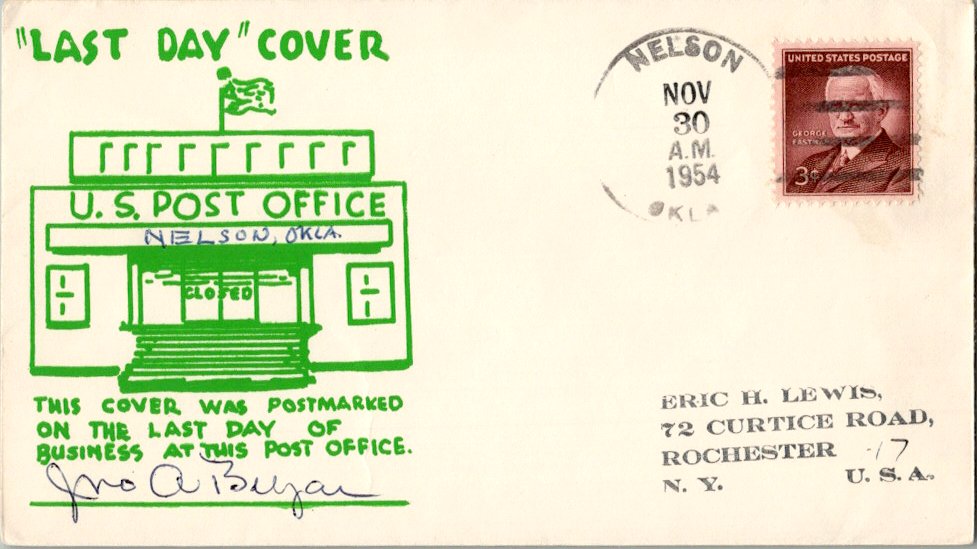 "LAST DAY" COVER
U.S. POST OFFICE
NELSON, OKLA.
CLOSED
THIS COVER WAS POSTMARKED
ON THE LAST DAY OF
BUSINESS AT THIS POST OFFICE.
Jno A
NELSON
NOV
30
A.M.
1954
OKLA
UNITED STATES POSTAGE
GEORGE
EASTMAN
3¢
ERIC H. LEWIS,
72 CURTICE ROAD,
ROCHESTER -17
N. Y. U. S. A.